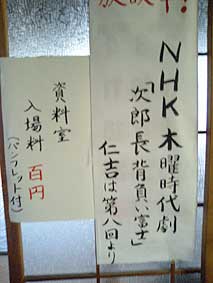 NHK木曜時代劇
「次郎長 背負い富士」
仁吉は第八回より
資料室
入場料 百円
(パンフレット付)